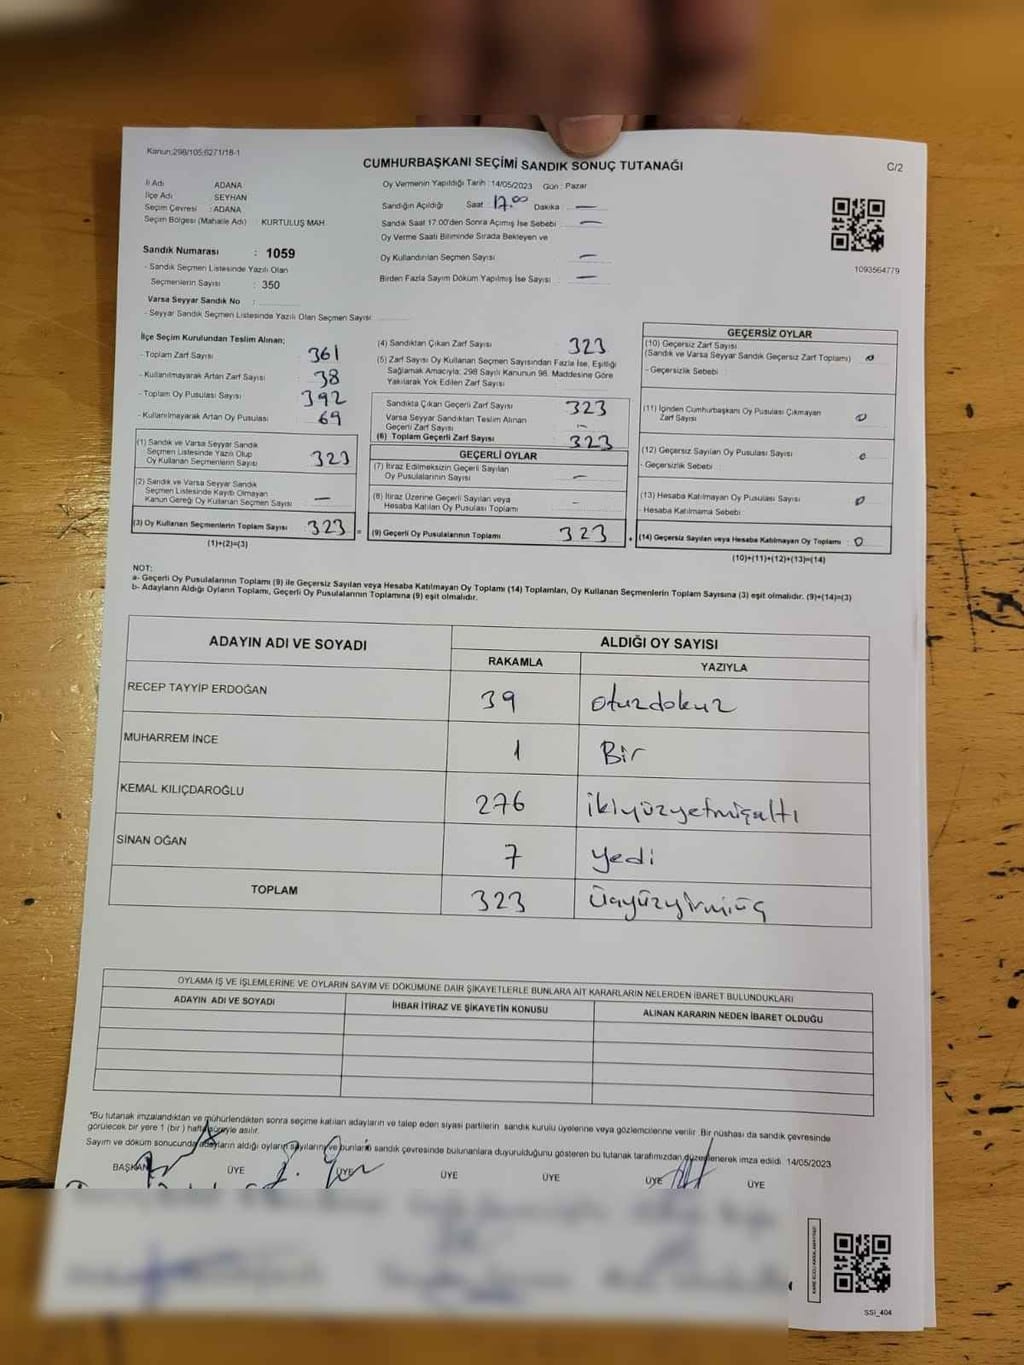 Kanun:298/105;6271/18-1
CUMHURBAŞKANI SEÇİMİ SANDIK SONUÇ TUTANAĞI
C/2
İl Adı ADANA
İlçe Adı SEYHAN
Seçim Çevresi : ADANA
Seçim Bölgesi (Mahalle Adı) KURTULUŞ MAH.
Oy Vermenin Yapıldığı Tarih : 14/05/2023 Gün : Pazar
Sandığın Açıldığı Saat : 17.00 Dakika : —
Sandık Saat 17.00'den Sonra Açılmış İse Sebebi : —
Oy Verme Saati Bitiminde Sırada Bekleyen ve
Oy Kullandırılan Seçmen Sayısı : —
Birden Fazla Sayım Döküm Yapılmış İse Sayısı : —
1093564779
Sandık Numarası : 1059
- Sandık Seçmen Listesinde Yazılı Olan
Seçmenlerin Sayısı : 350
Varsa Seyyar Sandık No :
- Seyyar Sandık Seçmen Listesinde Yazılı Olan Seçmen Sayısı:
İlçe Seçim Kurulundan Teslim Alınan;
- Toplam Zarf Sayısı 361
- Kullanılmayarak Artan Zarf Sayısı 38
- Toplam Oy Pusulası Sayısı 392
- Kullanılmayarak Artan Oy Pusulası 69
(1) Sandık ve Varsa Seyyar Sandık
Seçmen Listesinde Yazılı Olup
Oy Kullanan Seçmenlerin Sayısı 323
(2) Sandık ve Varsa Seyyar Sandık
Seçmen Listesinde Kayıtlı Olmayan
Kanun Gereği Oy Kullanan Seçmen Sayısı —
(3) Oy Kullanan Seçmenlerin Toplam Sayısı 323
(1)+(2)=(3)
(4) Sandıktan Çıkan Zarf Sayısı 323
(5) Zarf Sayısı Oy Kullanan Seçmen Sayısından Fazla İse, Eşitliği
Sağlamak Amacıyla; 298 Sayılı Kanunun 98. Maddesine Göre
Yakılarak Yok Edilen Zarf Sayısı
Sandıkta Çıkan Geçerli Zarf Sayısı 323
Varsa Seyyar Sandıktan Teslim Alınan
Geçerli Zarf Sayısı —
(6) Toplam Geçerli Zarf Sayısı 323
GEÇERLİ OYLAR
(7) İtiraz Edilmeksizin Geçerli Sayılan
Oy Pusulalarının Sayısı —
(8) İtiraz Üzerine Geçerli Sayılan veya
Hesaba Katılan Oy Pusulası Toplamı —
= (9) Geçerli Oy Pusulalarının Toplamı 323
GEÇERSİZ OYLAR
(10) Geçersiz Zarf Sayısı
(Sandık ve Varsa Seyyar Sandık Geçersiz Zarf Toplamı) 0
- Geçersizlik Sebebi :
(11) İçinden Cumhurbaşkanı Oy Pusulası Çıkmayan
Zarf Sayısı 0
(12) Geçersiz Sayılan Oy Pusulası Sayısı 0
- Geçersizlik Sebebi :
(13) Hesaba Katılmayan Oy Pusulası Sayısı 0
- Hesaba Katılmama Sebebi :
+ (14) Geçersiz Sayılan veya Hesaba Katılmayan Oy Toplamı : 0
(10)+(11)+(12)+(13)=(14)
NOT:
a- Geçerli Oy Pusulalarının Toplamı (9) ile Geçersiz Sayılan veya Hesaba Katılmayan Oy Toplamı (14) Toplamları, Oy Kullanan Seçmenlerin Toplam Sayısına (3) eşit olmalıdır. (9)+(14)=(3)
b- Adayların Aldığı Oyların Toplamı, Geçerli Oy Pusulalarının Toplamına (9) eşit olmalıdır.
ADAYIN ADI VE SOYADI ALDIĞI OY SAYISI
RAKAMLA YAZIYLA
RECEP TAYYİP ERDOĞAN 39 otuzdokuz
MUHARREM İNCE 1 Bir
KEMAL KILIÇDAROĞLU 276 ikiyüzyetmişaltı
SİNAN OĞAN 7 yedi
TOPLAM 323 üçyüzyirmiüç
OYLAMA İŞ VE İŞLEMLERİNE VE OYLARIN SAYIM VE DÖKÜMÜNE DAİR ŞİKAYETLERLE BUNLARA AİT KARARLARIN NELERDEN İBARET BULUNDUKLARI
ADAYIN ADI VE SOYADI İHBAR İTİRAZ VE ŞİKAYETİN KONUSU ALINAN KARARIN NEDEN İBARET OLDUĞU
*Bu tutanak imzalandıktan ve mühürlendikten sonra seçime katılan adayların ve talep eden siyasi partilerin sandık kurulu üyelerine veya gözlemcilerine verilir. Bir nüshası da sandık çevresinde
görülecek bir yere 1 (bir) hafta süreyle asılır.
Sayım ve döküm sonucunda adayların aldığı oyların sayılarını ve bunların sandık çevresinde bulunanlara duyurulduğunu gösteren bu tutanak tarafımızdan düzenlenerek imza edildi. 14/05/2023
BAŞKAN ÜYE ÜYE ÜYE ÜYE ÜYE ÜYE
SSI_404